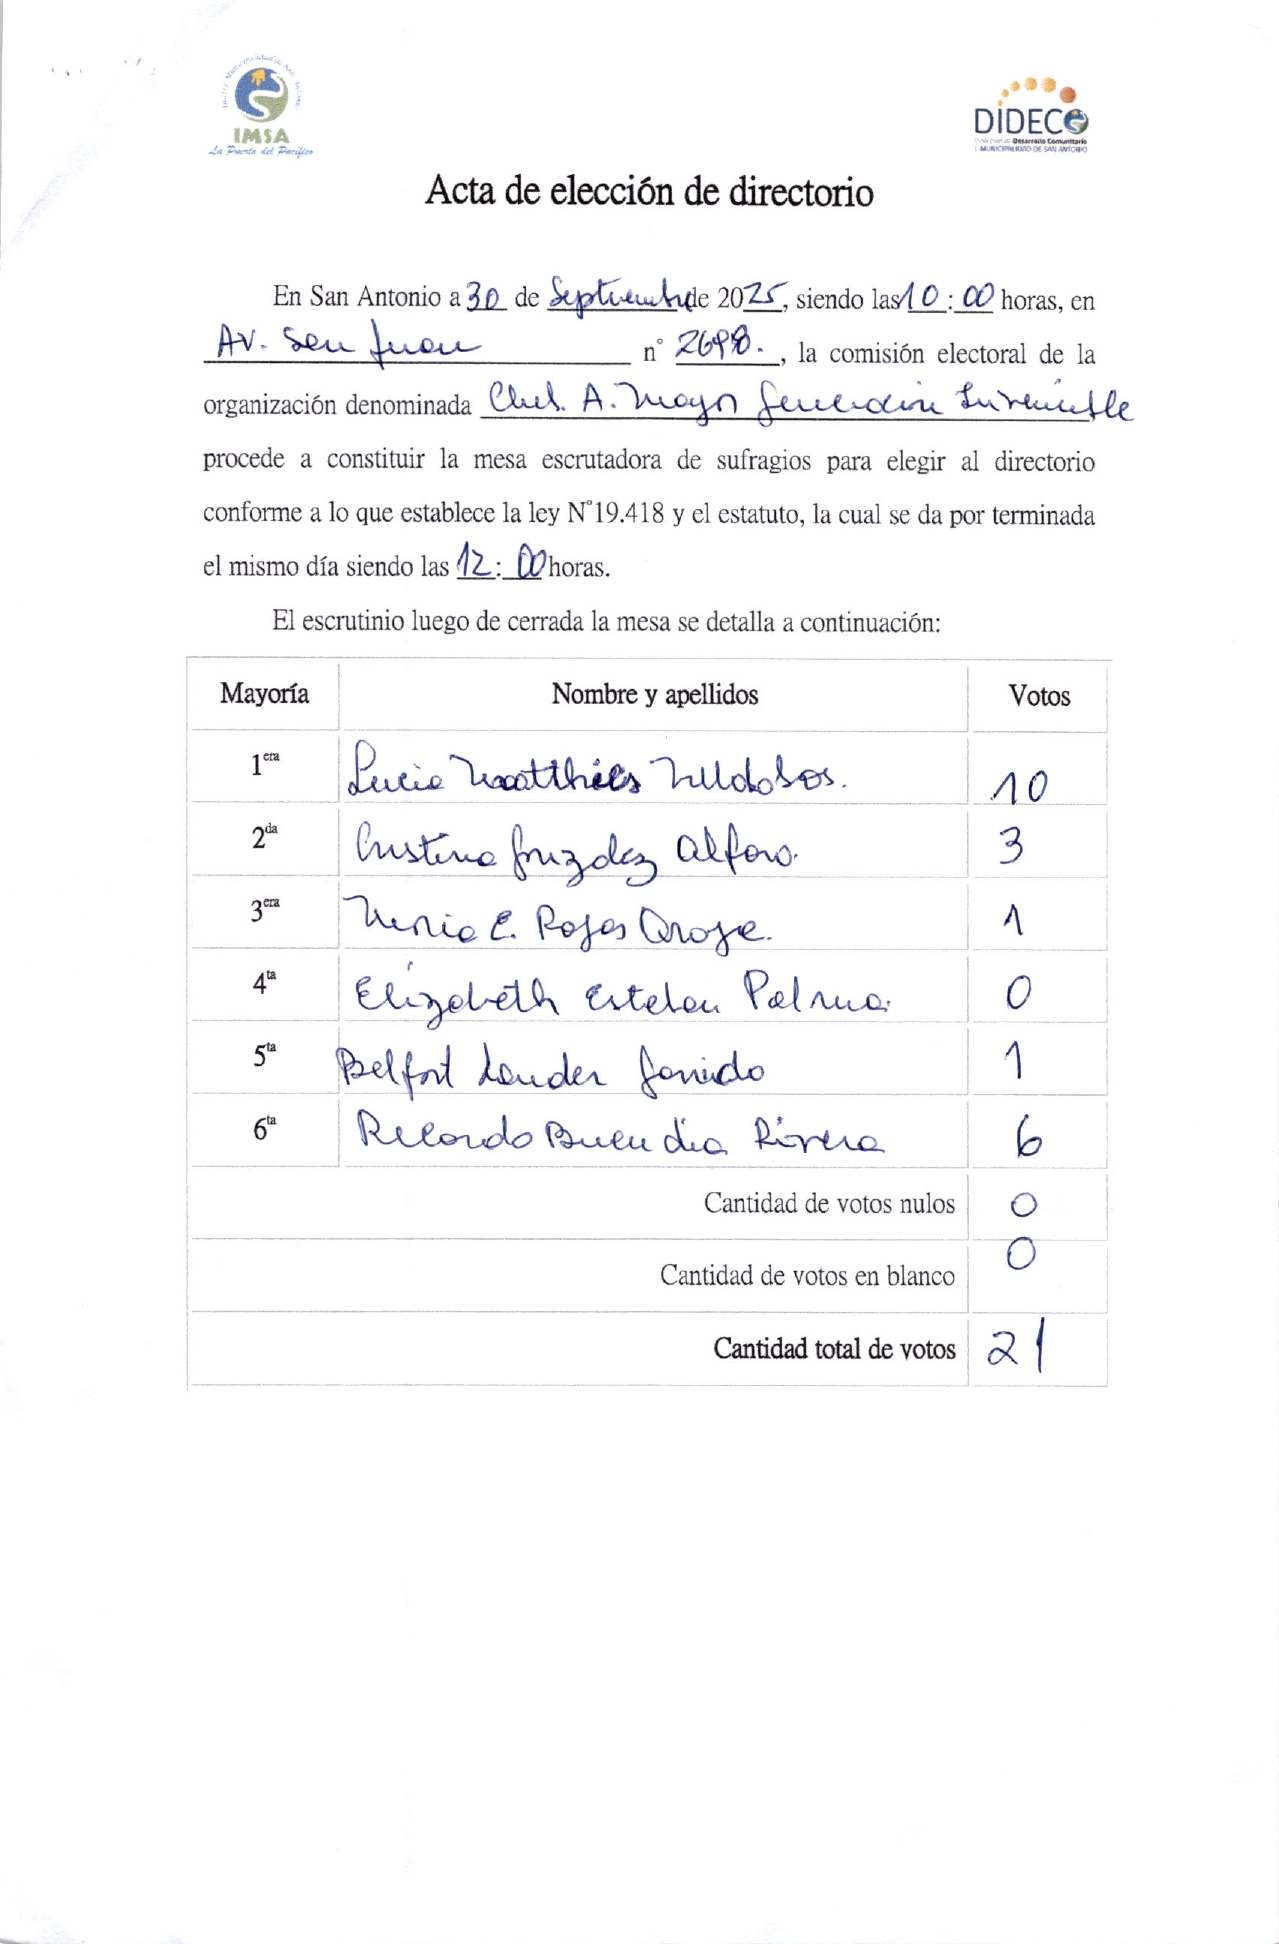 IMSA
La Puerta del Pacífico
DIDECO
Dirección de Desarrollo Comunitario
I. MUNICIPALIDAD DE SAN ANTONIO
Acta de elección de directorio
En San Antonio a 30 de Septiembre de 2025, siendo las 10:00 horas, en
Av. San Juan n° 2698., la comisión electoral de la
organización denominada Club. A. Mayor Generación Invencible
procede a constituir la mesa escrutadora de sufragios para elegir al directorio
conforme a lo que establece la ley N°19.418 y el estatuto, la cual se da por terminada
el mismo día siendo las 12:00 horas.
El escrutinio luego de cerrada la mesa se detalla a continuación:
Mayoría Nombre y apellidos Votos
1era Lucia Matthies 10
2da Cristina Alfaro. 3
3era E. Rojas 1
4ta Elizabeth Esteban Palma. 0
5ta Belfort 1
6ta Ricardo Buendia Rivera 6
Cantidad de votos nulos 0
Cantidad de votos en blanco 0
Cantidad total de votos 21